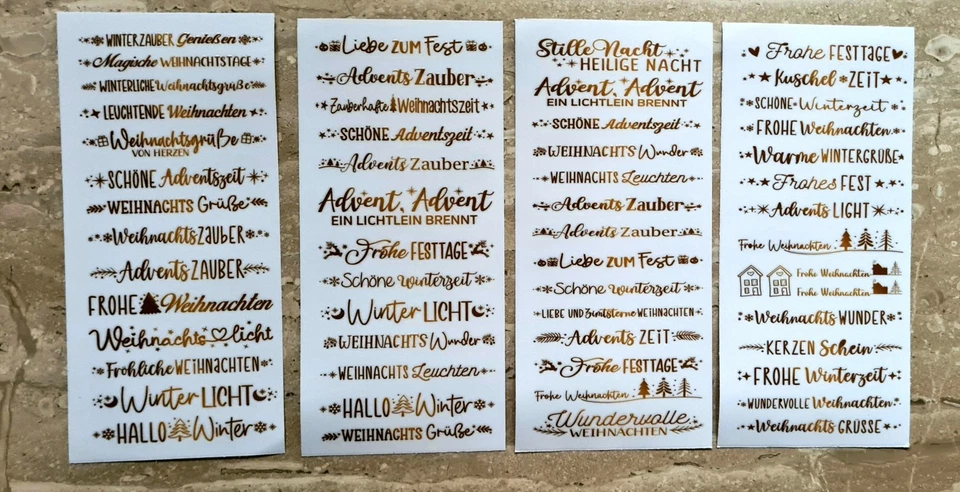 WINTERZAUBER Genießen
Magische WEIHNACHTSTAGE
WINTERLICHE Weihnachtsgrüße
LEUCHTENDE Weihnachten
Weihnachtsgrüße
VON HERZEN
SCHÖNE Adventszeit
WEIHNACHTS Grüße
WeihnachtsZAUBER
Advents ZAUBER
FROHE Weihnachten
Weihnachts licht
Fröhliche WEIHNACHTEN
Winter LICHT
HALLO Winter
Liebe ZUM Fest
Advents Zauber
Zauberhafte Weihnachtszeit
SCHÖNE Adventszeit
Advents Zauber
Advent, Advent
EIN LICHTLEIN BRENNT
Frohe FESTTAGE
Schöne Winterzeit
Winter LICHT
WEIHNACHTS Wunder
WEIHNACHTS Leuchten
HALLO Winter
WEIHNACHTS Grüße
Stille Nacht
HEILIGE NACHT
Advent, Advent
EIN LICHTLEIN BRENNT
SCHÖNE Adventszeit
WEIHNACHTS Wunder
WEIHNACHTS Leuchten
Advents Zauber
Advents Zauber
Liebe ZUM Fest
Schöne Winterzeit
LIEBE UND Zimtsterne WEIHNACHTEN
Advents ZEIT
Frohe FESTTAGE
Frohe Weihnachten
Wundervolle
WEIHNACHTEN
Frohe FESTTAGE
Kuschel ZEIT
SCHÖNE Winterzeit
FROHE Weihnachten
Warme WINTERGRÜßE
Frohes FEST
Advents LIGHT
Frohe Weihnachten
Frohe Weihnachten
Frohe Weihnachten
Weihnachts WUNDER
KERZEN Schein
FROHE Winterzeit
WUNDERVOLLE Weihnachten
Weihnachts GRÜSSE